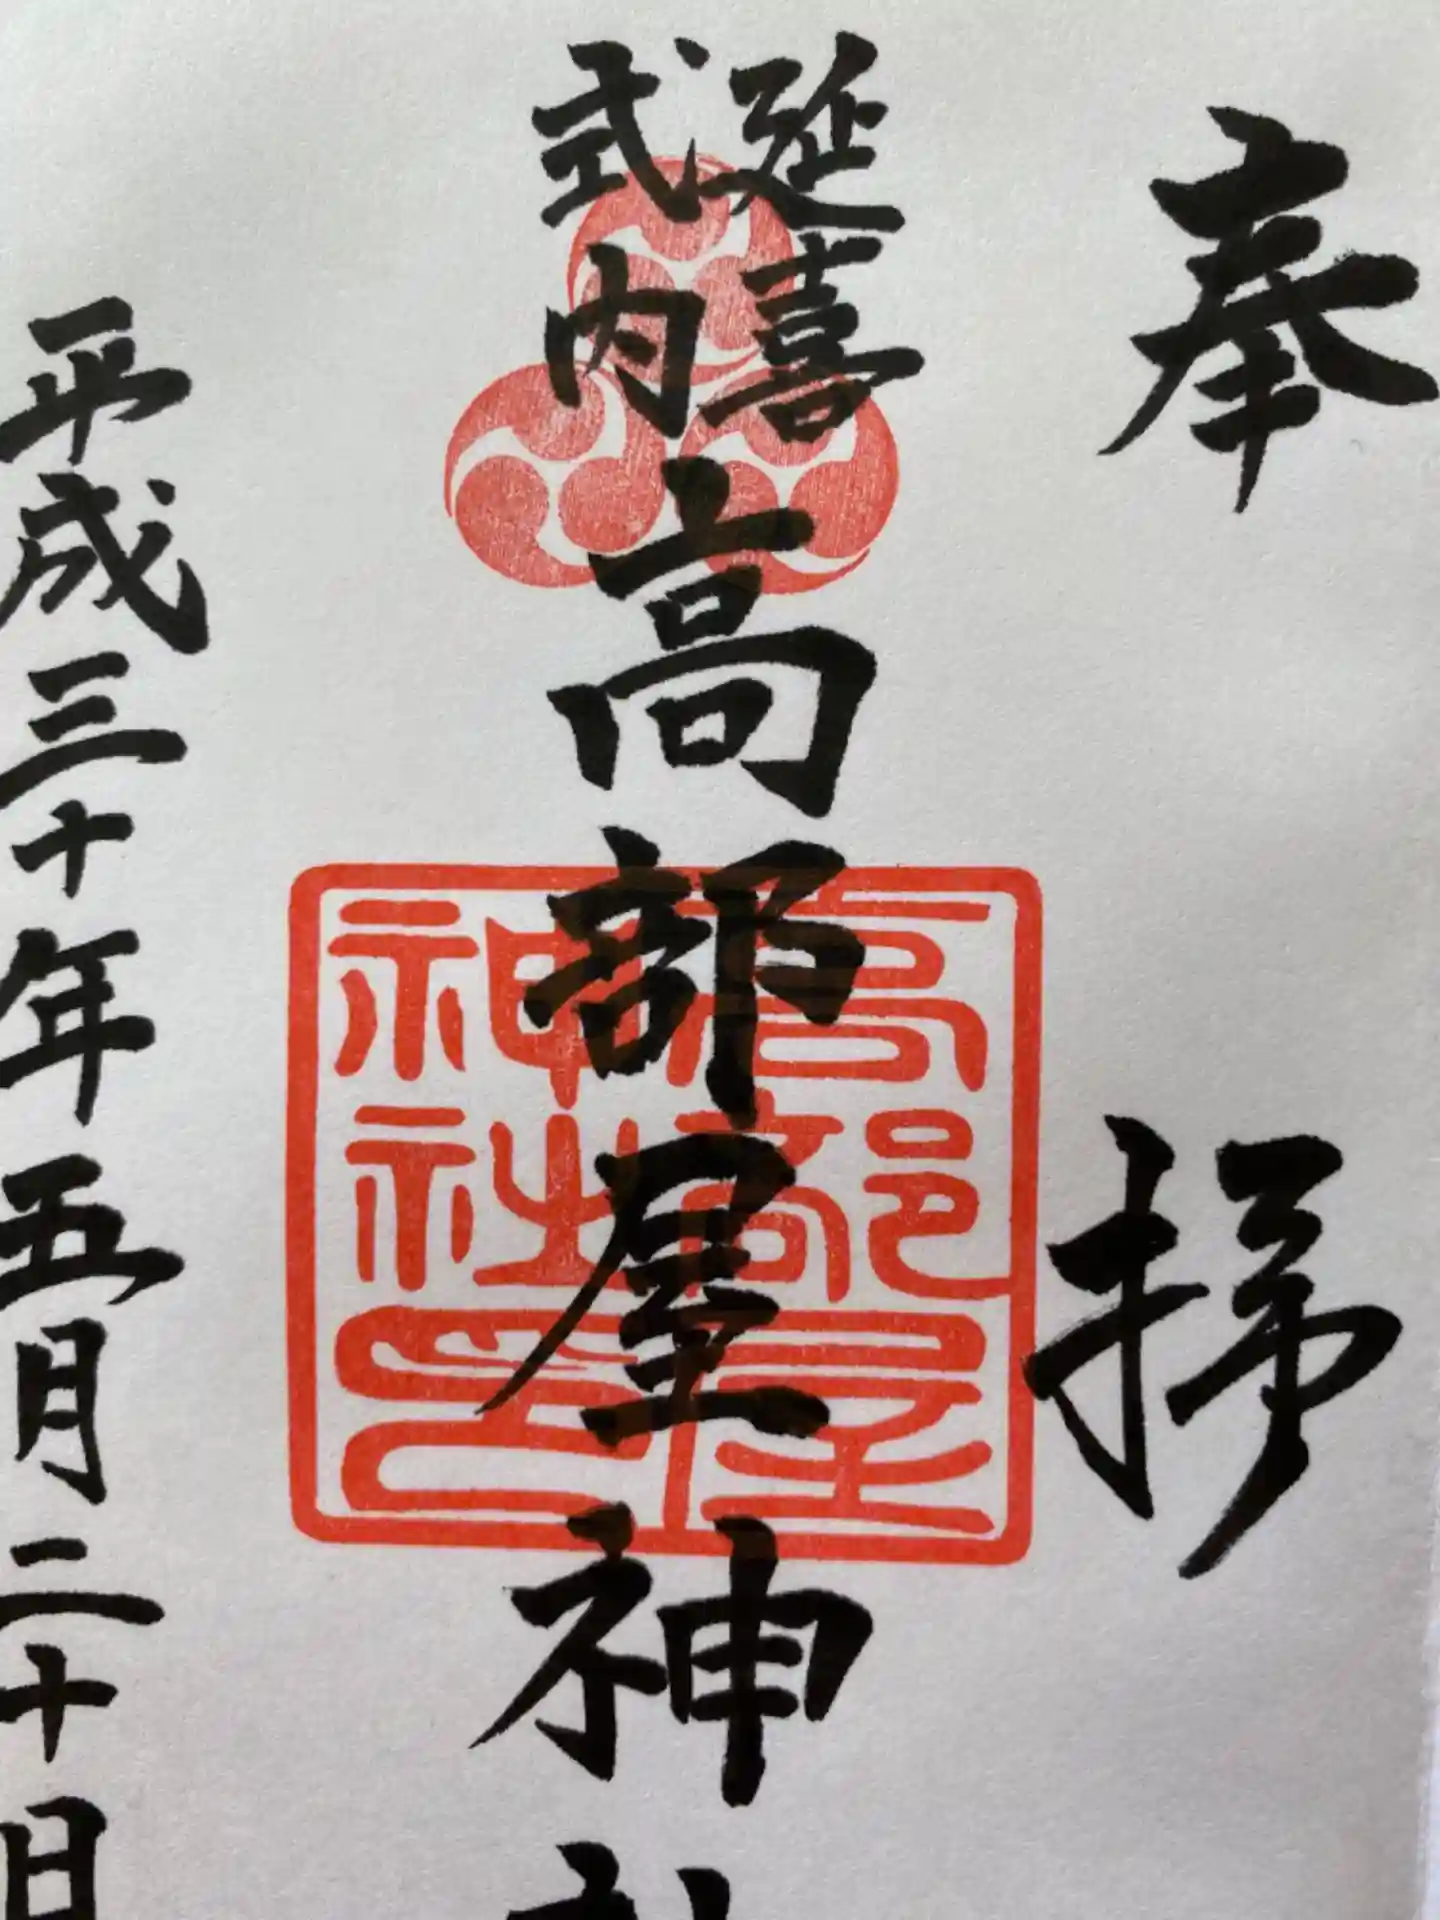 奉拝
延喜
式内
高部屋神社
高部屋
神社印
平成三十年五月二十日